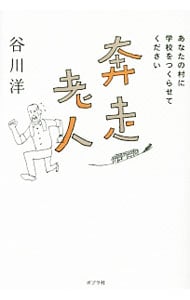 あなたの村に
学校をつくらせて
ください
奔走
老人
谷川洋
ポプラ社